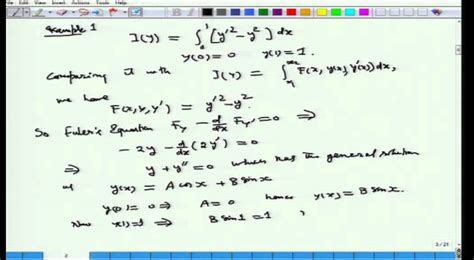 File Edit View Insert Actions Tools Help
Example 1 I(y) = ∫₀¹ [y'² - y²] dx
y(0) = 0 y(1) = 1.
Comparing it with I(y) = ∫ₓ₁ˣ² F(x, y(x), y'(x)) dx,
we have
F(x, y, y') = y'² - y².
So Euler's Equation F_y - d/dx F_y' = 0 ⇒
-2y - d/dx (2y') = 0
⇒ y + y'' = 0 which has the general solution
y(x) = A cos x + B sin x
y(0) = 0 ⇒ A = 0 hence y(x) = B sin x.
Now y(1) = 1 ⇒ B sin 1 = 1
3 / 21